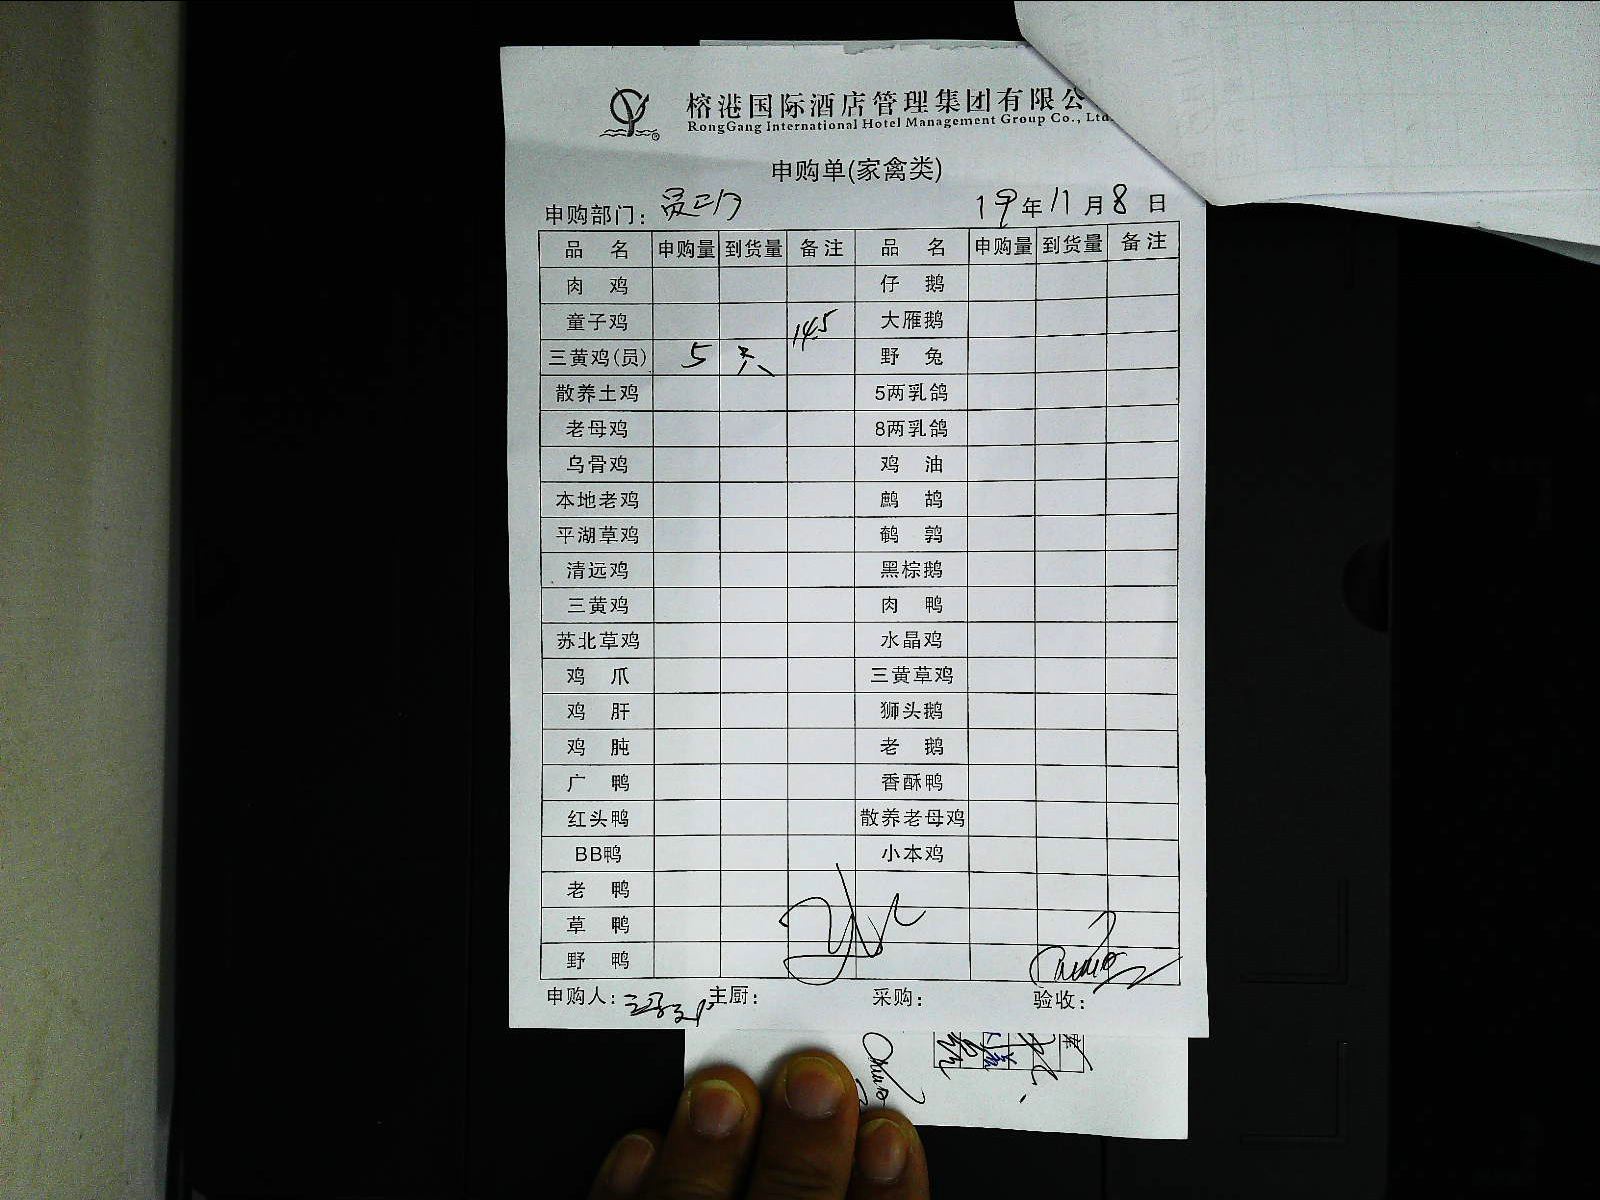 榕港国际酒店管理集团有限公
RongGang International Hotel Management Group Co., Ltd.
申购单(家禽类)
申购部门: 19年11月8日
品 名 申购量 到货量 备注 品 名 申购量 到货量 备注
肉 鸡 仔 鹅
童子鸡 大雁鹅
三黄鸡(员) 5 只 14.5 野 兔
散养土鸡 5两乳鸽
老母鸡 8两乳鸽
乌骨鸡 鸡 油
本地老鸡 鹧 鸪
平湖草鸡 鹌 鹑
清远鸡 黑棕鹅
三黄鸡 肉 鸭
苏北草鸡 水晶鸡
鸡 爪 三黄草鸡
鸡 肝 狮头鹅
鸡 肫 老 鹅
广 鸭 香酥鸭
红头鸭 散养老母鸡
BB鸭 小本鸡
老 鸭
草 鸭
野 鸭
申购人: 主厨: 采购: 验收: